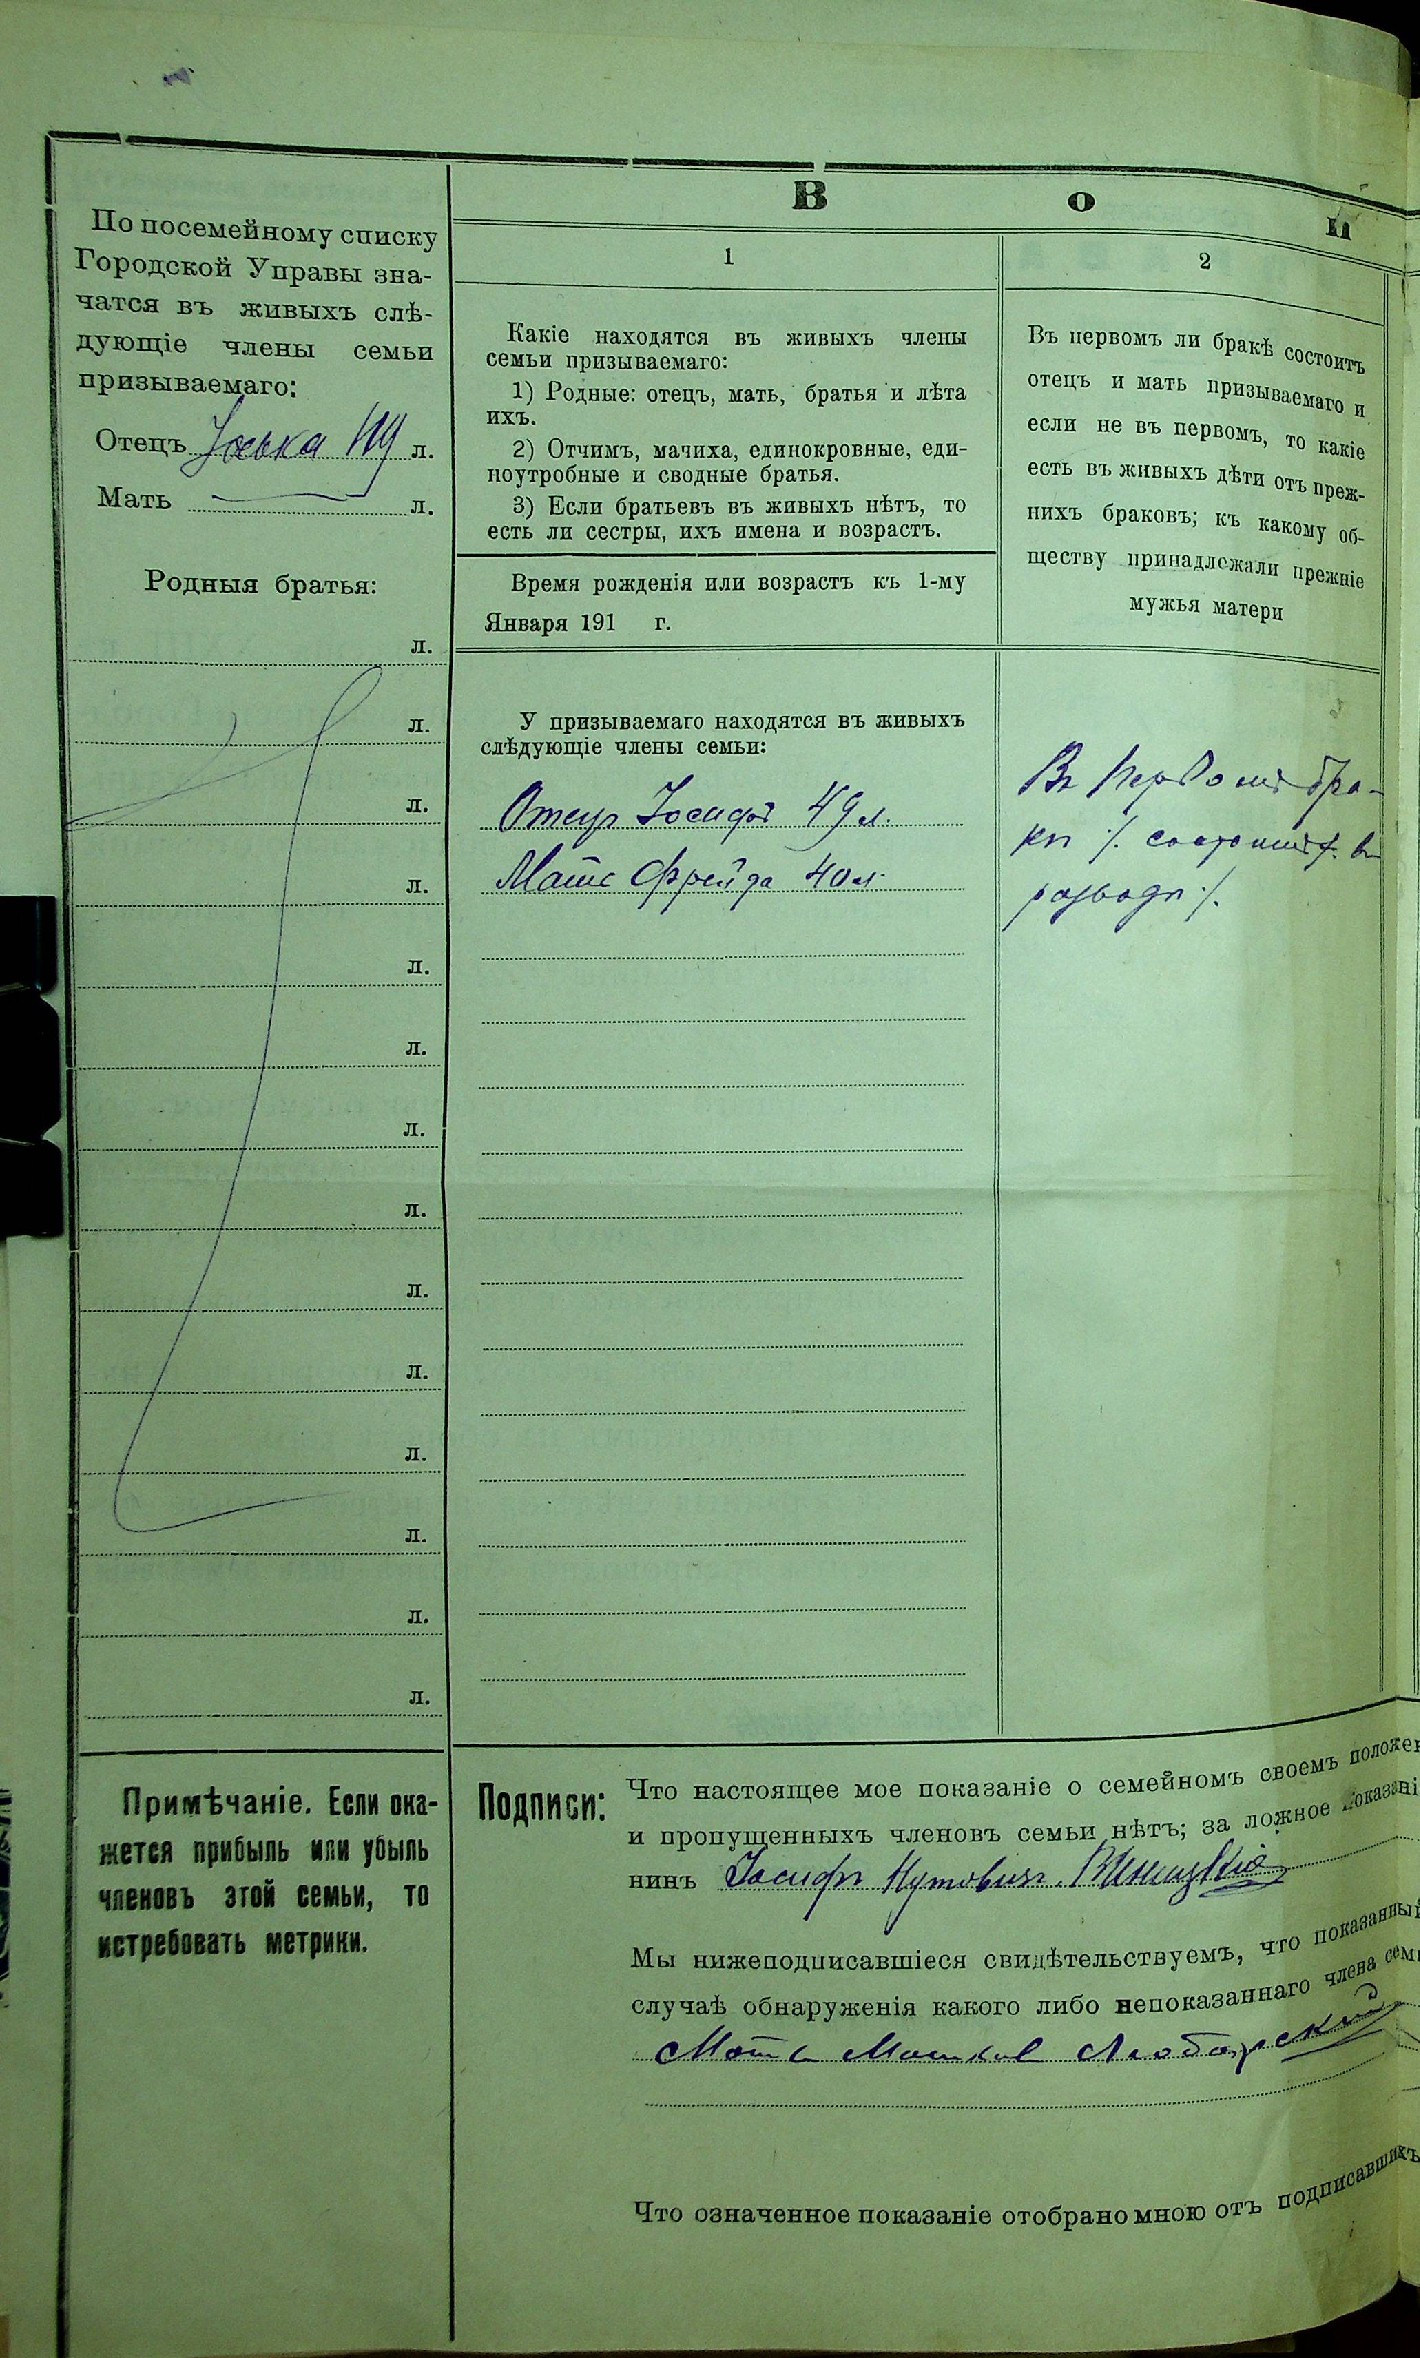 В о п
По посемейному списку
Городской Управы зна-
чатся въ живыхъ слѣ-
дующіе члены семьи
призываемаго:
Отецъ Иоська 49 л.
Мать л.
Родныя братья:
л.
л.
л.
л.
л.
л.
л.
л.
л.
л.
л.
л.
л.
л.
Примѣчаніе. Если ока-
жется прибыль или убыль
членовъ этой семьи, то
истребовать метрики.
1
Какіе находятся въ живыхъ члены
семьи призываемаго:
1) Родные: отецъ, мать, братья и лѣта
ихъ.
2) Отчимъ, мачиха, единокровные, еди-
ноутробные и сводные братья.
3) Если братьевъ въ живыхъ нѣтъ, то
есть ли сестры, ихъ имена и возрастъ.
Время рожденія или возрастъ къ 1-му
Января 191 г.
У призываемаго находятся въ живыхъ
слѣдующіе члены семьи:
Отецъ Іосифъ 49 л.
Мать Фрейда 40 л.
2
Въ первомъ ли бракѣ состоитъ
отецъ и мать призываемаго и
если не въ первомъ, то какіе
есть въ живыхъ дѣти отъ преж-
нихъ браковъ; къ какому об-
ществу принадлежали прежніе
мужья матери
Въ первомъ бра-
кѣ /. состоитъ въ
разводѣ /.
Подписи:
Что настоящее мое показаніе о семейномъ своемъ положен
и пропущенныхъ членовъ семьи нѣтъ; за ложное показані
нинъ Іосифъ
Мы нижеподписавшіеся свидѣтельствуемъ, что показанный
случаѣ обнаруженія какого либо непоказаннаго члена семь
Мошков Любарский
Что означенное показаніе отобрано мною отъ подписавшихъ